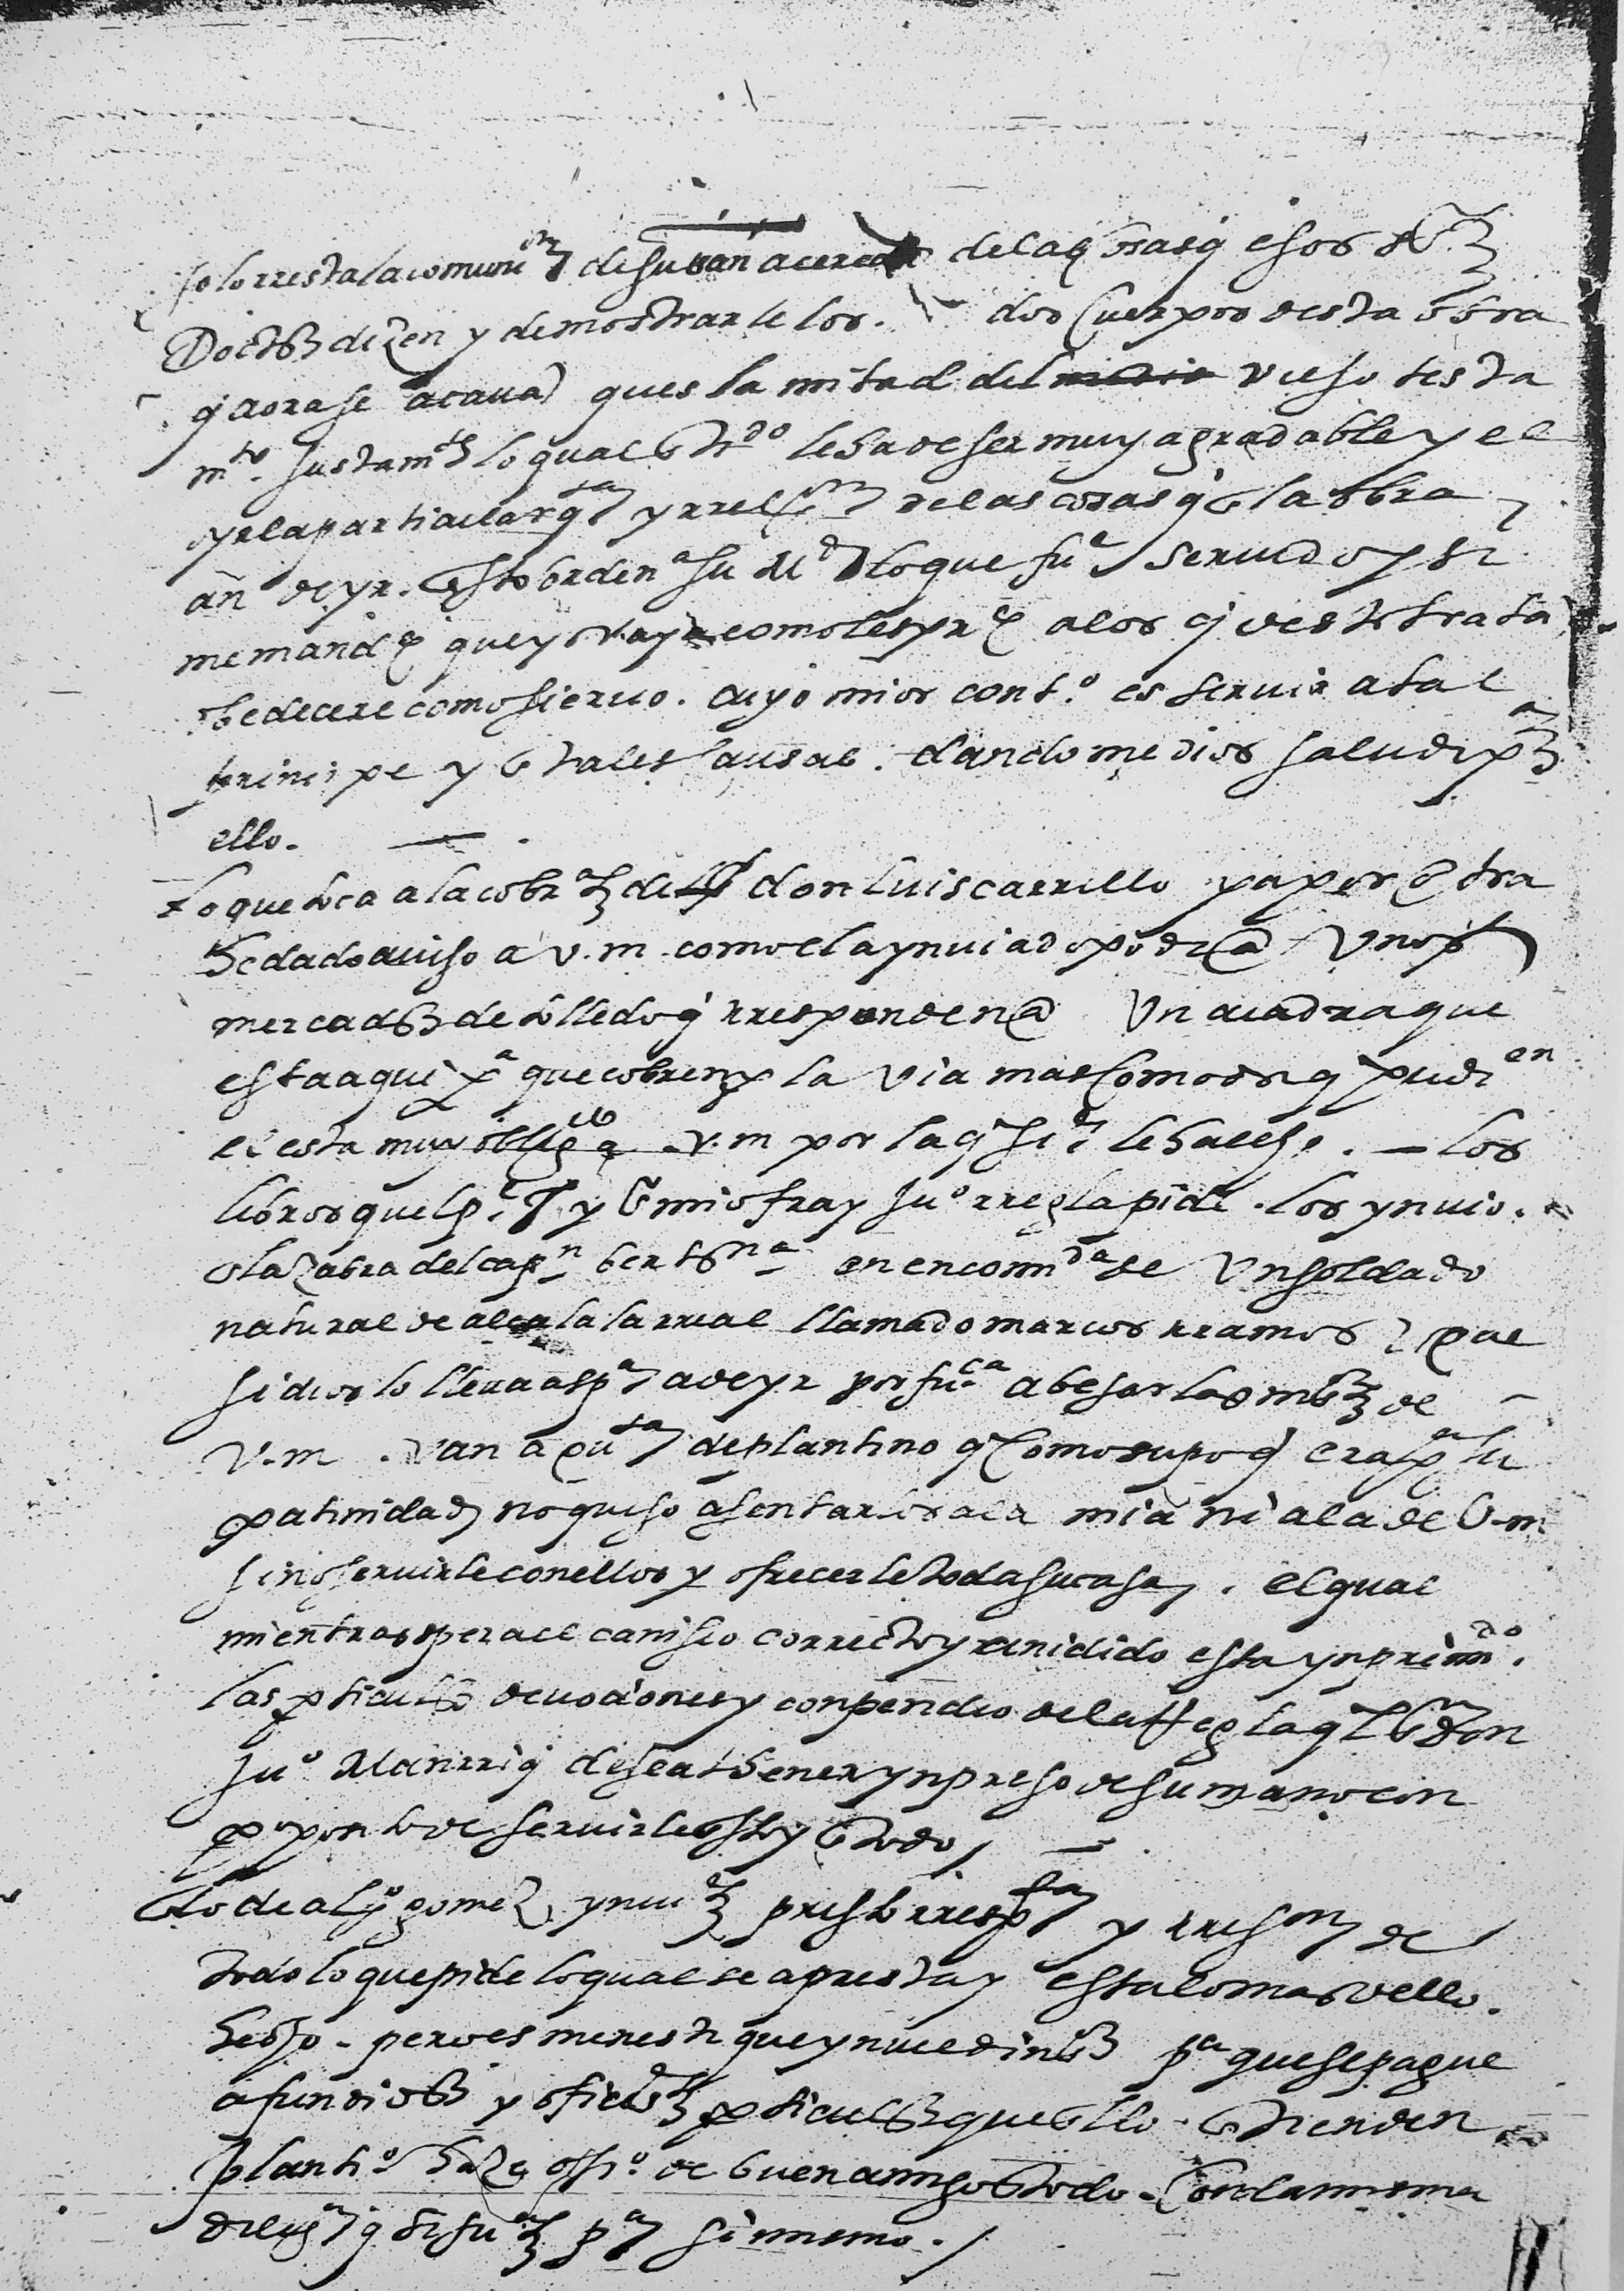 solo rresta la comuni^on de su san^d acerca de la q cosas q esos s^res
Doct^res dizen y de mostrarle los dos cuerpos desta obra
q aora se acaua q ues la mitad del viejo testa
m^to. Justam^te lo qual e^do le ha de ser muy agradable y el
y ela particular q^ta y rrel^on de las cosas q e la obra
an de yr. esto orden^a su M^d lo que fu^e seruido y si
me mand^e que yo vaya como les pr^e a los q desto trata^n
obedecere como sieruo. cuyo mior cont^o. es seruir a tal
principe y e tales causas. dandome dios salud p^a
ello.
Lo que toca a la cobr^a de don Luis carrillo ya por otra
he dado auiso a v.m. como el a ynuiado poder a vnos
mercad^res de tolledo q rresponden a Vn cuadra que
esta aqui p^a que cobren p la via mas comoda q pudi^en
el esta muy oblig^do a v.m por la q se le ha hecho. — los
libros que el p^e y s^r mio fray Ju^o rregla pide. los ynuio.
e la zabra del cap^n bertend^na en encom^da de Vn soldado
natural de alcala la rreal llamado marcos rramos q
si dios lo lleua a esp^a a de yr por fu^ca a besar las m^os de
V.m. van a qu^ta de plantino q como supo q era p^a su
patrnidad no quiso asentarlos a la mia ni a la de V.m
sino seruirle con ellos y ofrecerle toda su casa. el qual
mientras spera el canisio correcto y anidido esta ynprim^do.
las pticul^res deuociones y conpendio de la rregla q el s^r don
Ju^o Manrriq desea tener ynpreso de su mano con
pro pon to de seruirle esto y e todo
Lo de al^o gomez ynui^a presto rresp^ta y rres^on de
todo lo que pide lo qual se apresta y esta lo mas dello
hecho. pero es menest^r que ynuie din^ro p^a que se pague
a fundid^res y ofici^les pticul^res que ello entienden
plantin^o haze offi^o. de buen amigo e todo. con la misma
dilig^a q si fu^a p^a si mismo.